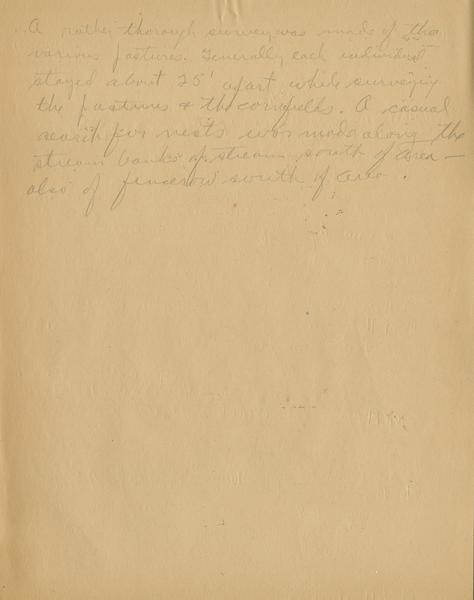 A rather thorough survey was made of the
various pastures. Generally each individual
stayed about 25' apart while surveying
the pastures & the cornfields. A casual
search for nests was made along the
stream banks of stream south of area —
also of fencerow south of area.